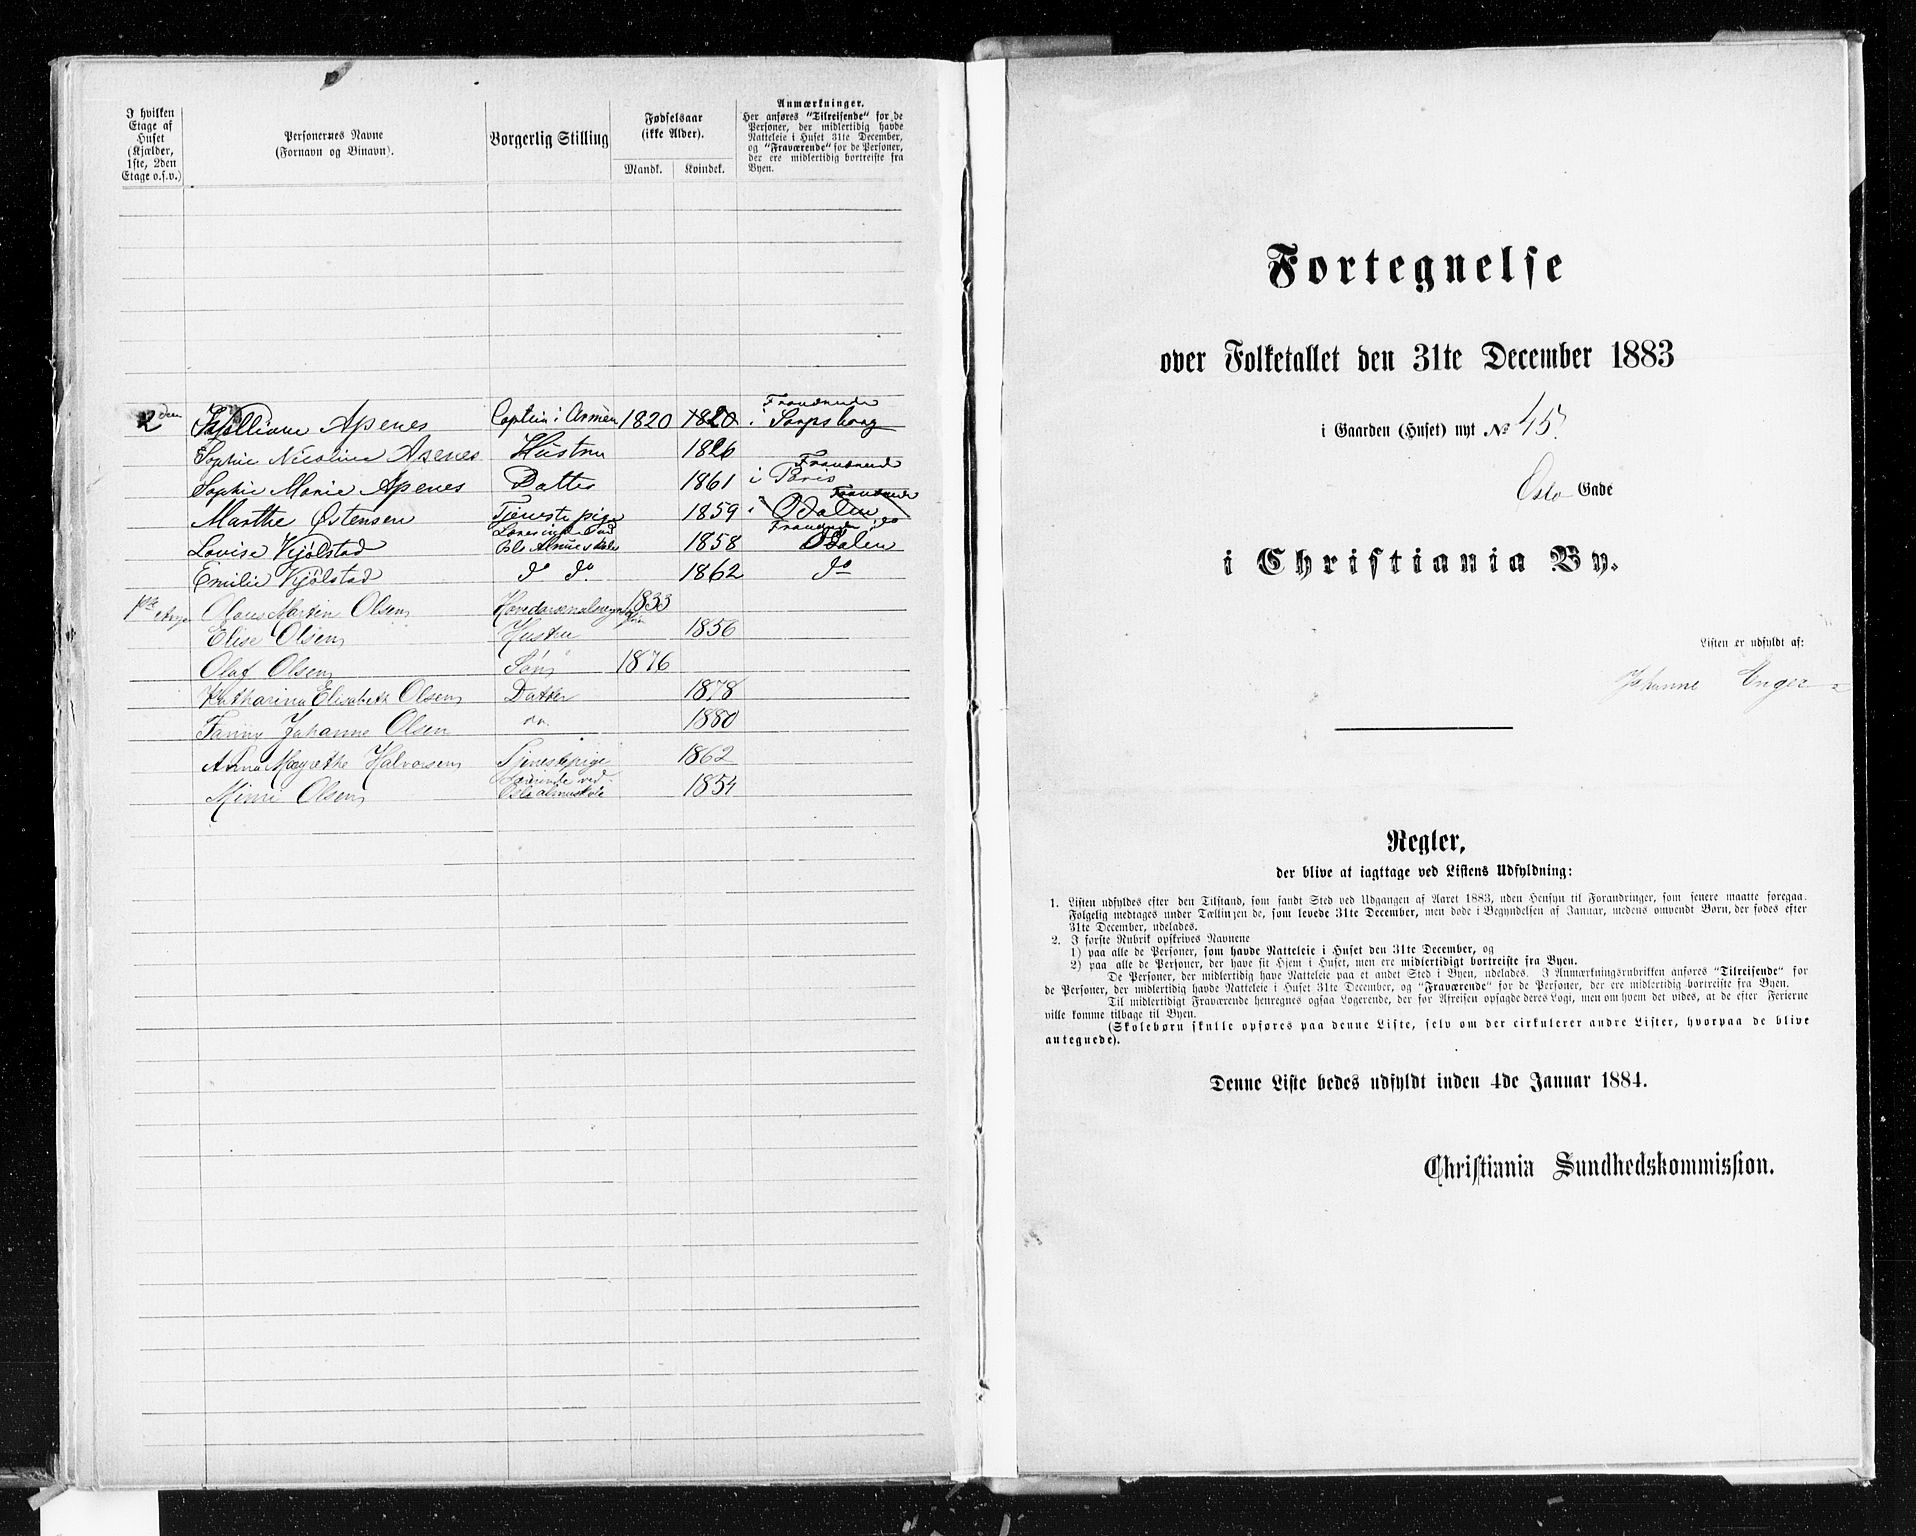 I hvilken
Etage af
Huset
(Kjælder,
1ste, 2den
Etage o.s.v.)
Personernes Navne
(Fornavn og Binavn).
Borgerlig Stilling
Fødselsaar
(ikke Alder).
Mandk. Kvindek.
Anmærkninger.
Her anføres "Tilreisende" for de
Personer, der midlertidig havde
Natteleie i Huset 31te December,
og "Fraværende" for de Personer,
der ere midlertidig bortreiste fra
Byen.
2den Apenes Captein i Armeen 1820 1820 Fraværende i Sarpsborg
Sophie Nicoline Apenes Hustru 1826
Sophie Marie Apenes Datter 1861 Fraværende i Paris
Marthe Østensen Tjenestepige 1859 Fraværende i Odalen
Lovise Kjølstad Lærerinde ved Oslo Almueskole 1858 Fraværende i Odalen
Emilie Kjølstad do do. 1862 do
Martin Olsen 1833
Elise Olsen Hustru 1856
Olaf Olsen Søn 1876
Katharina Elisabeth Olsen Datter 1878
Fanny Johanne Olsen do. 1880
Anna Margrethe Halvorsen Tjenestepige 1862
Mimi Olsen Lærerinde ved Oslo almueskole 1854
Fortegnelse
over Folketallet den 31te December 1883
i Gaarden (Huset) nyt No 45.
Oslo Gade
i Christiania By.
Listen er udfyldt af:
Johanne Enger
Regler,
der blive at iagttage ved Listens Udfyldning:
1. Listen udfyldes efter den Tilstand, som fandt Sted ved Udgangen af Aaret 1883, uden Hensyn til Forandringer, som senere maatte foregaa.
Følgelig medtages under Tællingen de, som levede 31te December, men døde i Begyndelsen af Januar, medens omvendt Børn, der fødes efter
31te December, udelades.
2. I første Rubrik opskrives Navnene
1) paa alle de Personer, som havde Natteleie i Huset den 31te December, og
2) paa alle de Personer, der have sit Hjem i Huset, men ere midlertidigt bortreiste fra Byen.
De Personer, der midlertidig have Natteleie paa et andet Sted i Byen, udelades. I Anmærkningsrubrikken anføres "Tilreisende" for
de Personer, der midlertidig havde Natteleie i Huset 31te December, og "Fraværende" for de Personer, der ere midlertidig bortreiste fra Byen.
Til midlertidigt Fraværende henregnes ogsaa Logerende, der før Afreisen opsagde deres Logi, men om hvem det vides, at de efter Ferierne
ville komme tilbage til Byen.
(Skolebørn skulle opføres paa denne Liste, selv om der cirkulerer andre Lister, hvorpaa de blive
antegnede).
Denne Liste bedes udfyldt inden 4de Januar 1884.
Christiania Sundhedskommission.